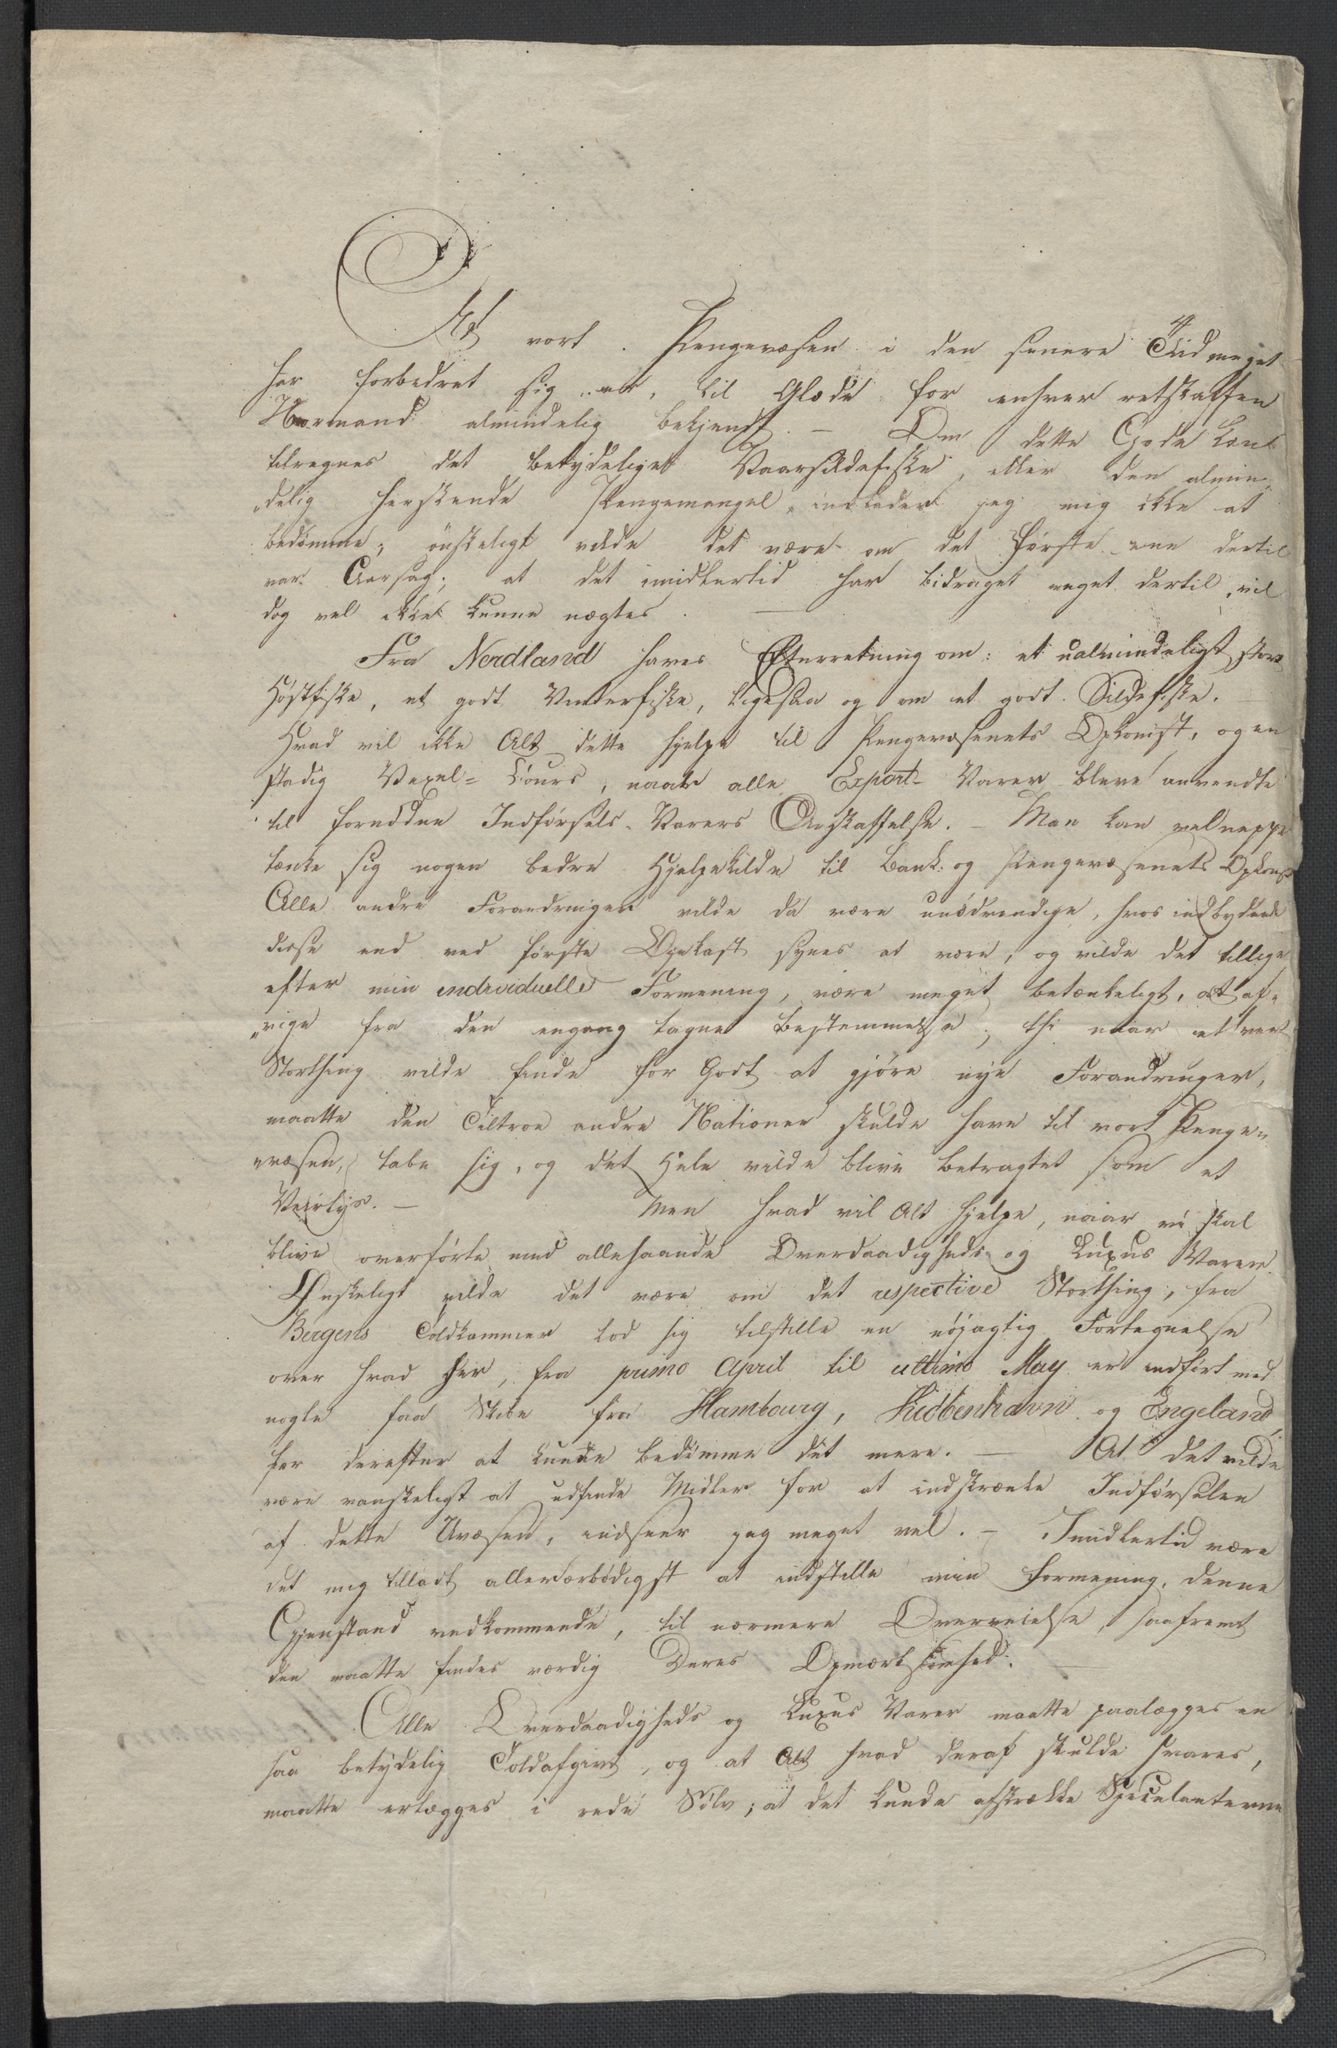 At vort Pengevæsen i den senere Tiid meget
har forbedret sig er, til Glæde for enhver retskaffen
Normand almindelig bekjendt. — Om dette Gode kan
tilregnes det betydelige Vaarsildefiske, eller den almin„
„delig herskende Pengemangel, indlader jeg mig ikke at
bedömme; önskeligt vilde det være om det første ene dertil
var Aarsag; at det imidlertid har bidraget meget dertil, vil
dog vel ikke kunne nægtes. —
Fra Nordland haves Efterretning om: et ualmindeligt stort
Høstfiske, et godt Vinterfiske, ligesaa og om et godt Sildefiske. —
Hvad vil ikke Alt dette hjelpe til Pengevæsenets Opkomst, og en
stadig Vexel-Cours, naar alle Export-Varer bleve anvendte
til fornødne Indførsels-Varers Anskaffelse. — Man kan vel neppe
tænke sig nogen bedre Hjelpekilde til Bank- og Pengevæsenets Opkomst
Alle andre Forandringer vilde da være unödvendige, hvor indbydende
disse end ved første Öiekast synes at være, og vilde det tillige
efter min individuelle Formening, være meget betænkeligt, at af„
„vige fra den engang tagne Bestemmelse; thi naar et nyt
Storthing vilde finde for Godt at gjöre nye Forandringer,
maatte den Tiltroe andre Nationer skulde have til vort Penge„
„væsen, tabe sig, og det Hele vilde blive betragtet som et
Veirlys. — Men hvad vil Alt hjelpe, naar vi skal
blive overförte med allehaande Overdaadigheds og Luxus Varer.
Ønskeligt vilde det være om det respective Storthing, fra
Bergens Toldkammer lod sig tilstille en nöjagtig Fortegnelse
over hvad her, fra primo April til ultimo May er indført med
nogle faa Skibe fra Hambourg, Kiöbenhavn og Engeland,
for derefter at kunne bedömme det mere. — At det vilde
være vanskeligt at udfinde Midler for at indskrænke Indførselen
af dette Uvæsen, indseer jeg meget vel. — Imidlertid være
det mig tilladt allerærbödigst at indstille min Formening, denne
Gjenstand vedkommende, til nærmere Overveielse, saafremt
den maatte findes værdig Deres Opmærksomhed. —
Alle Overdaadigheds og Luxus Varer maatte paalægges en
saa betydelig Toldafgivt, og at Alt hvad deraf skulde svares,
maatte erlægges i rede Sölv; at det kunde afskrække Speculanterne